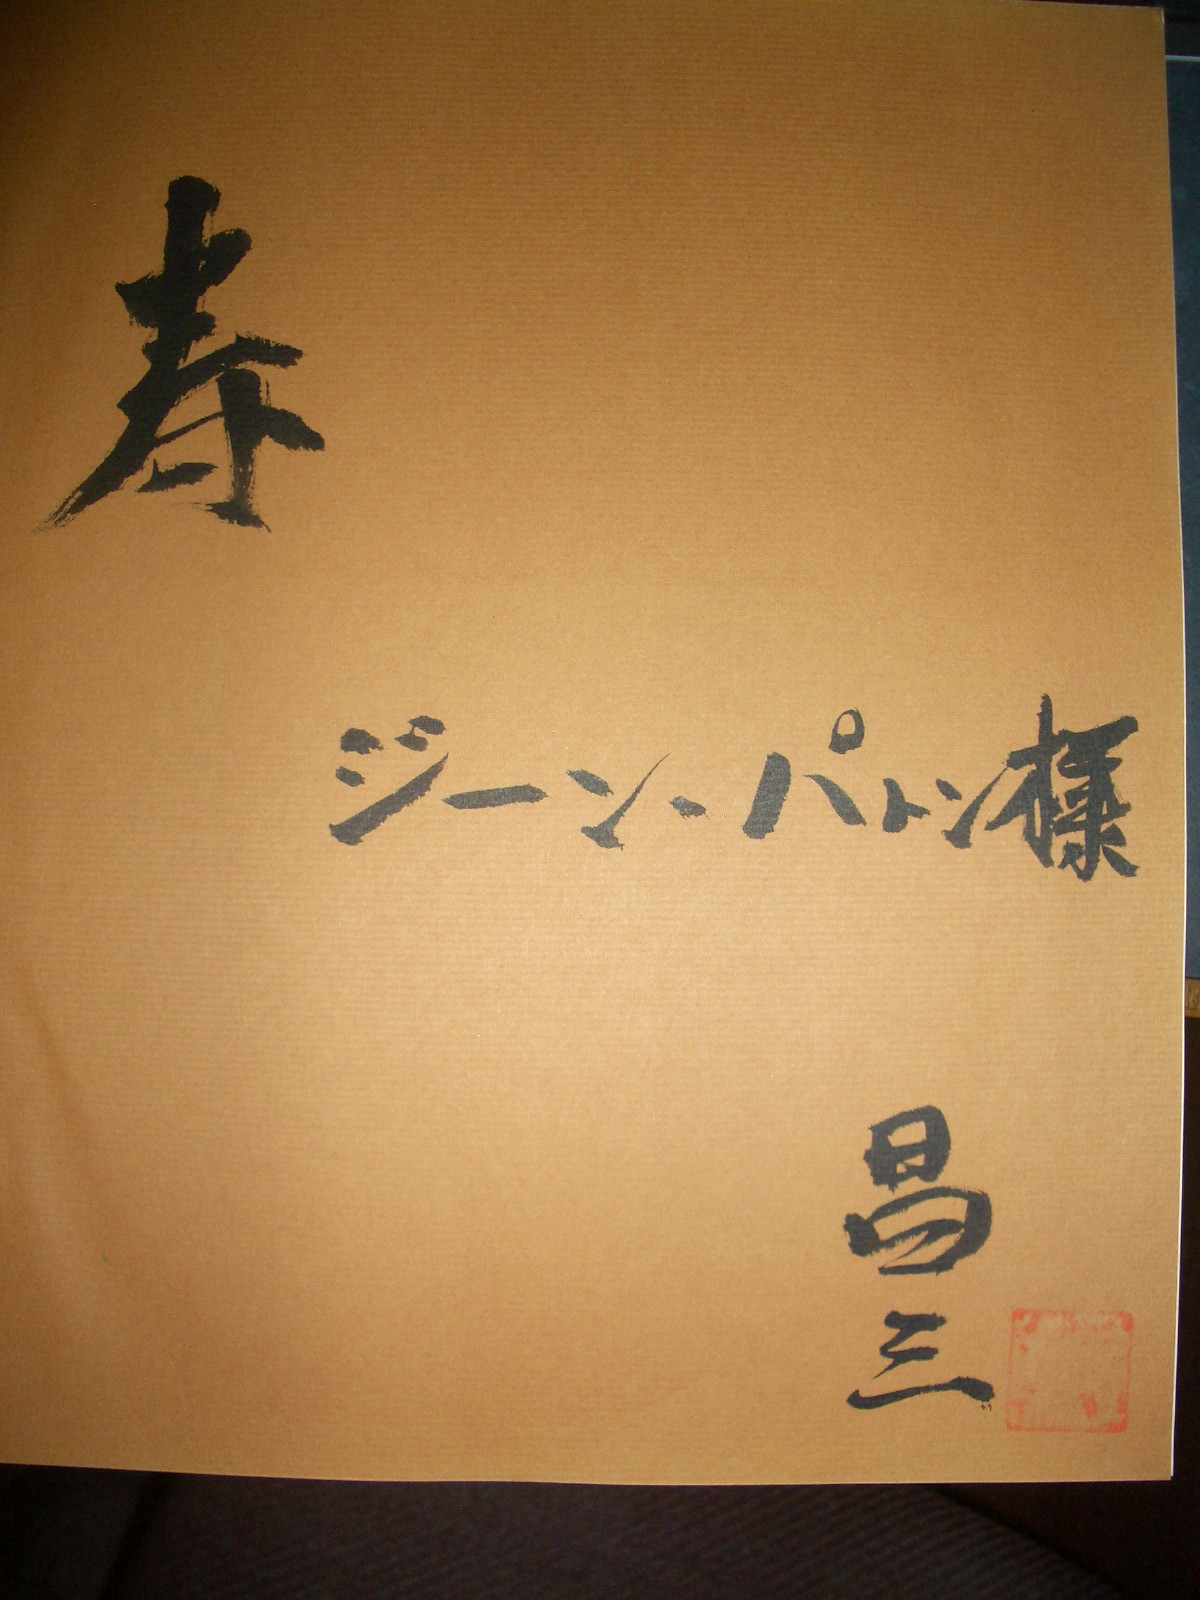 寿
ジーン・パトン様
昌三